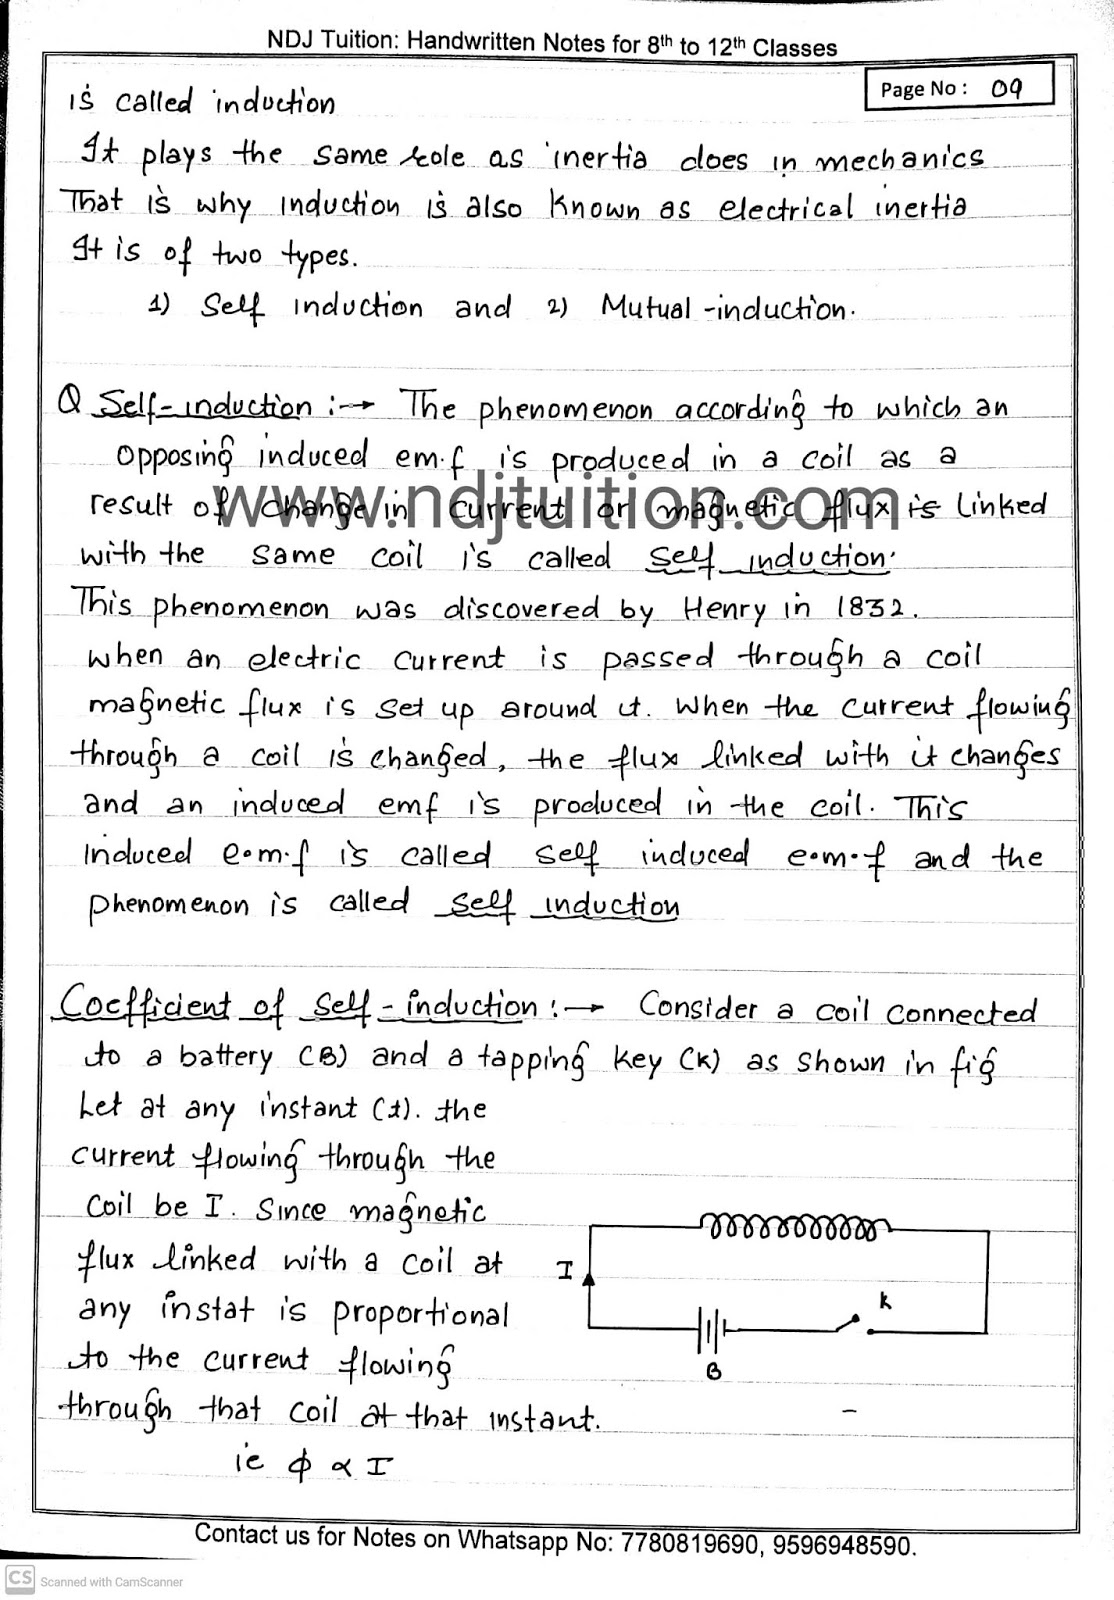 NDJ Tuition: Handwritten Notes for 8th to 12th Classes
Page No : 09
is called induction
It plays the same role as inertia does in mechanics
That is why induction is also known as electrical inertia
It is of two types.
1) Self induction and 2) Mutual-induction.
Q Self-induction :→ The phenomenon according to which an
opposing induced em.f is produced in a coil as a
result of change in current or magnetic flux is linked
www.ndjtuition.com
with the same coil is called self induction.
This phenomenon was discovered by Henry in 1832.
when an electric current is passed through a coil
magnetic flux is set up around it. when the current flowing
through a coil is changed, the flux linked with it changes
and an induced emf is produced in the coil. This
induced e.m.f is called self induced e.m.f and the
phenomenon is called self induction
Coefficient of self-induction :→ Consider a coil connected
to a battery (B) and a tapping key (K) as shown in fig
Let at any instant (t). the
current flowing through the
coil be I. Since magnetic
flux linked with a coil at
any instat is proportional
to the current flowing
through that coil at that instant.
ie ϕ ∝ I
I
K
B
Contact us for Notes on Whatsapp No: 7780819690, 9596948590.
CS Scanned with CamScanner